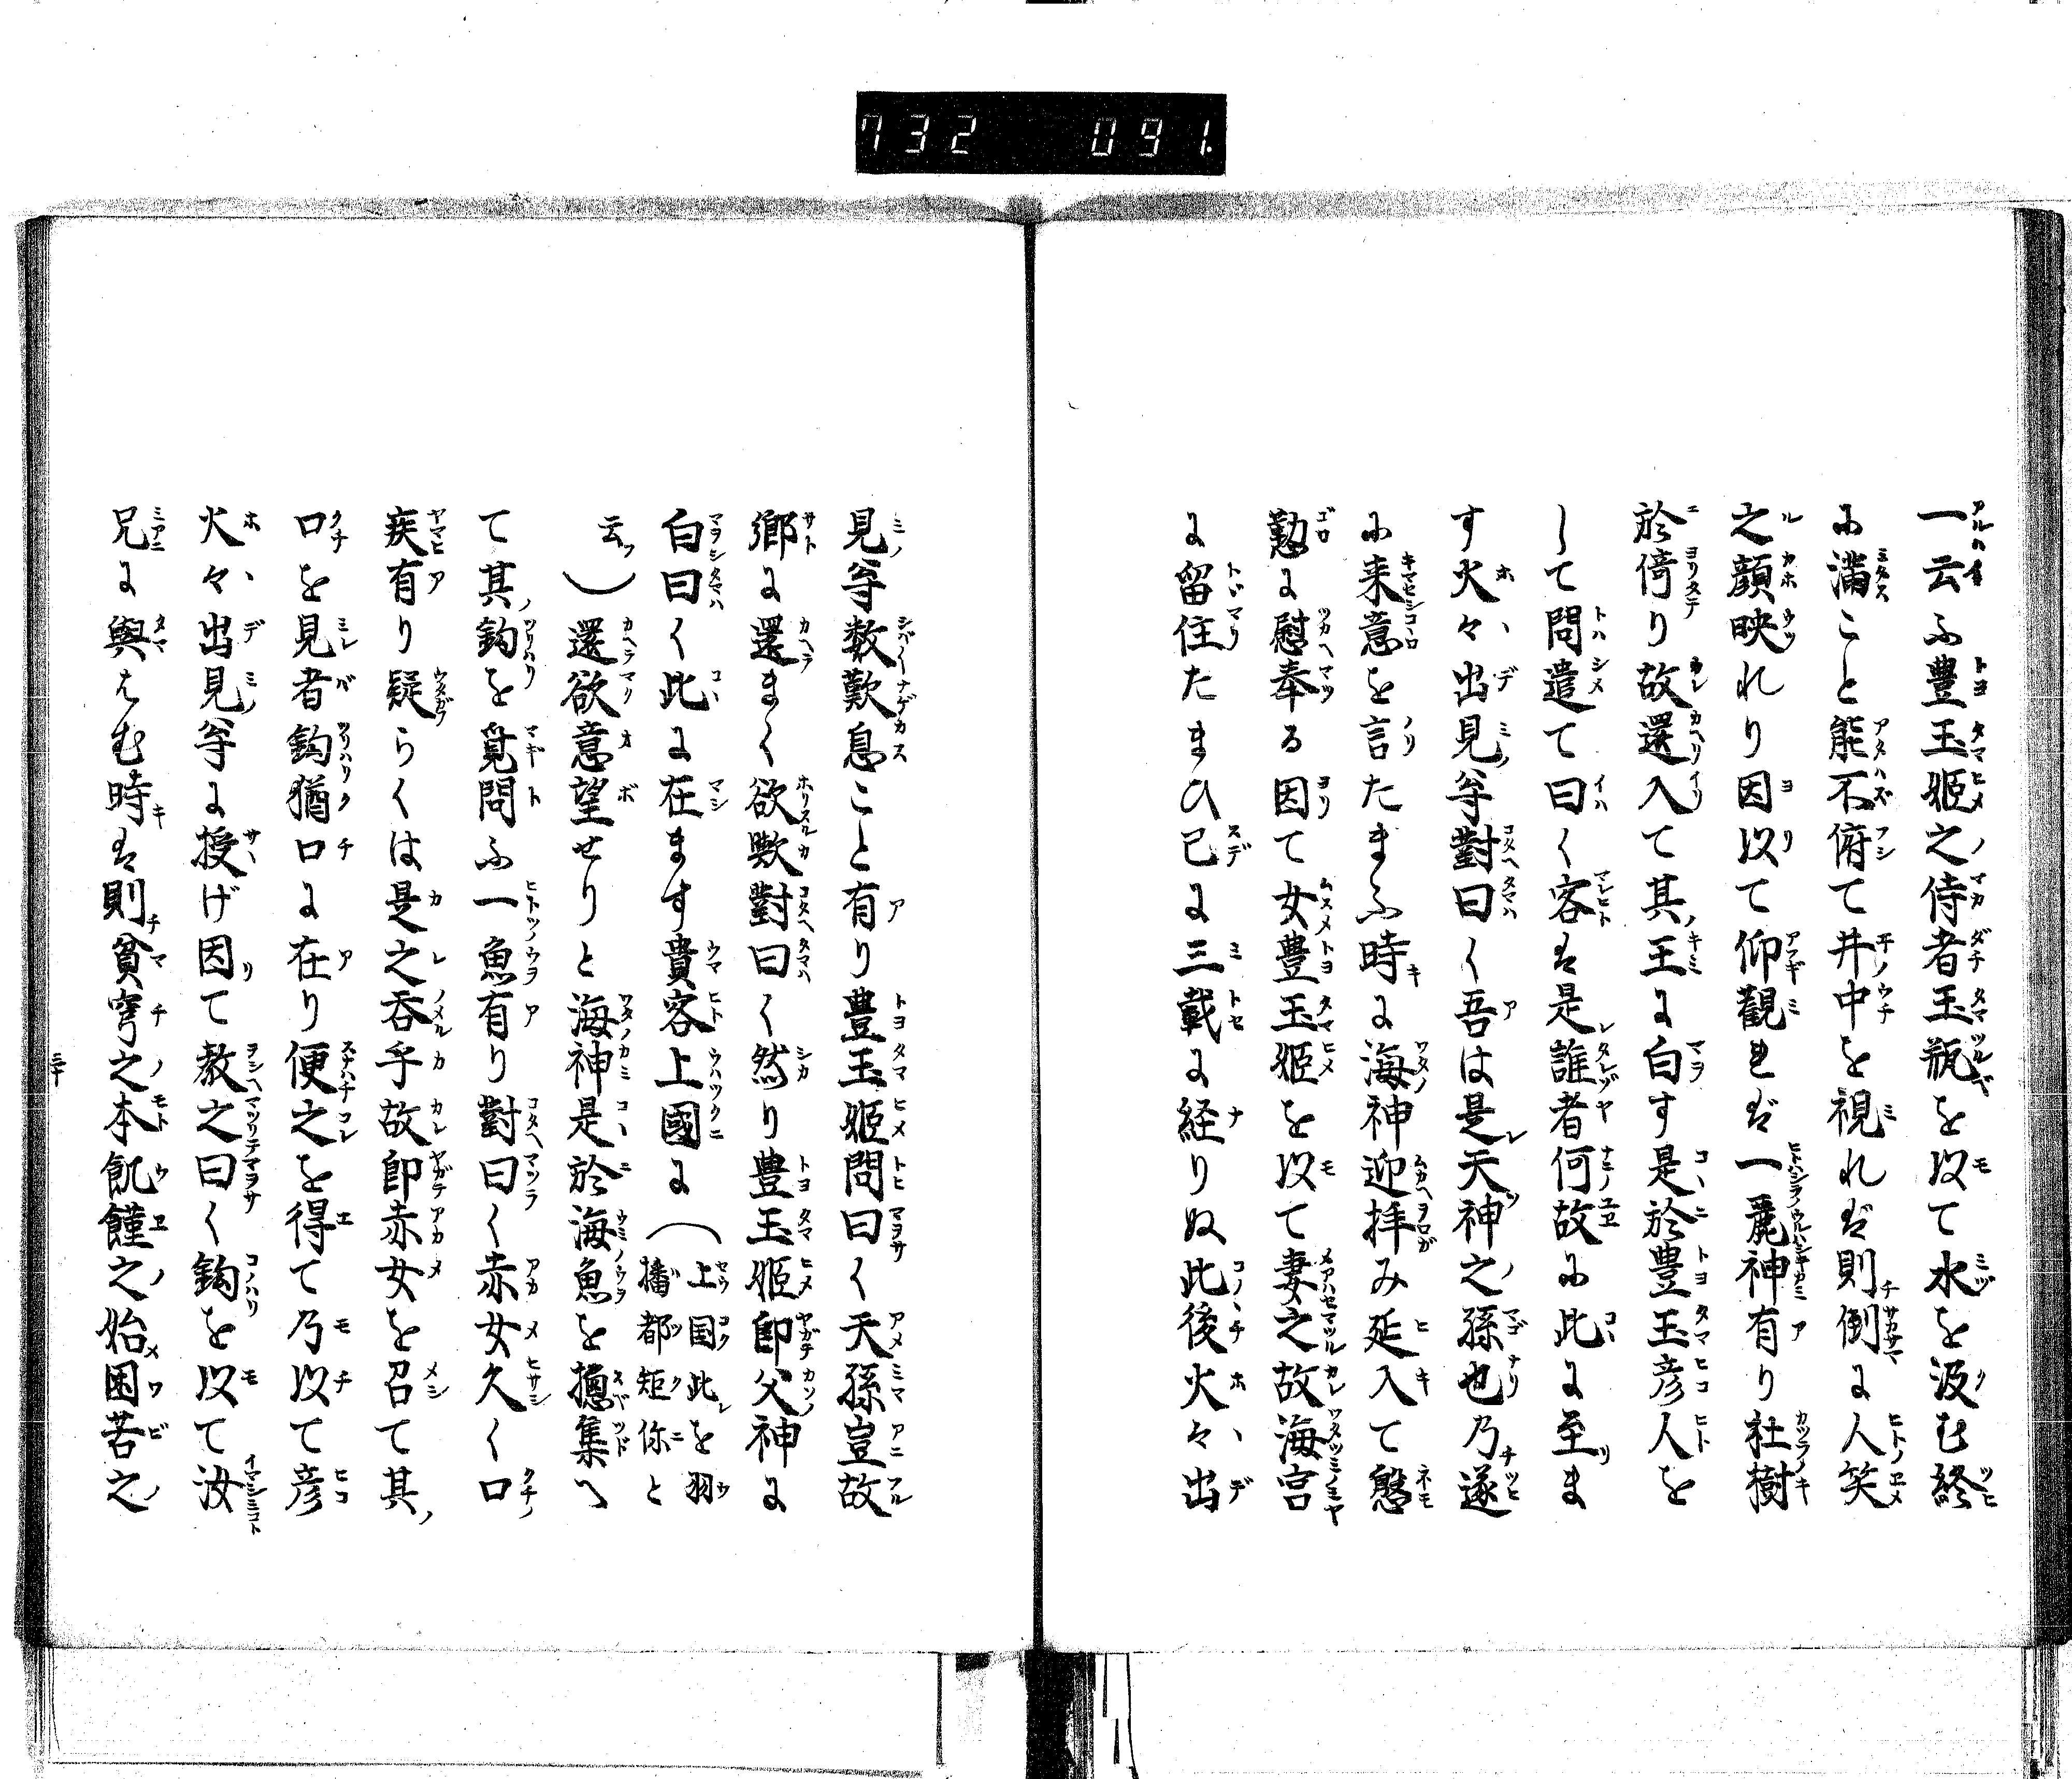 732 091.
一云ふ豊玉姫之侍者玉瓶を以て水を汲む終
に満こと能不俯て井中を視れば則倒に人笑
之顔映れり因以て仰観れば一麗神有り杜樹
於倚り故還入て其王に白す是於豊玉彦人を
して問遣て曰く客は是誰者何故に此に至ま
す火々出見尊對曰く吾は是天神之孫也乃遂
に来意を言たまふ時に海神迎拝み延入て慇
懃に慰奉る因て女豊玉姫を以て妻之故海宮
に留住たまひ已に三載に経りぬ此後火々出
見尊数歎息こと有り豊玉姫問曰く天孫豈故
郷に還まく欲歟對曰く然り豊玉姫即父神に
白曰く此に在ます貴客上國に(上国此を羽播都矩你と
云)還欲意望せりと海神是於海魚を摠集へ
て其鈎を覓問ふ一魚有り對曰く赤女久く口
疾有り疑らくは是之呑乎故即赤女を召て其
口を見者鈎猶口に在り便之を得て乃以て彦
火々出見尊に授げ因て教之曰く鈎を以て汝
兄に與はむ時は則貧窮之本飢饉之始困苦之
三十